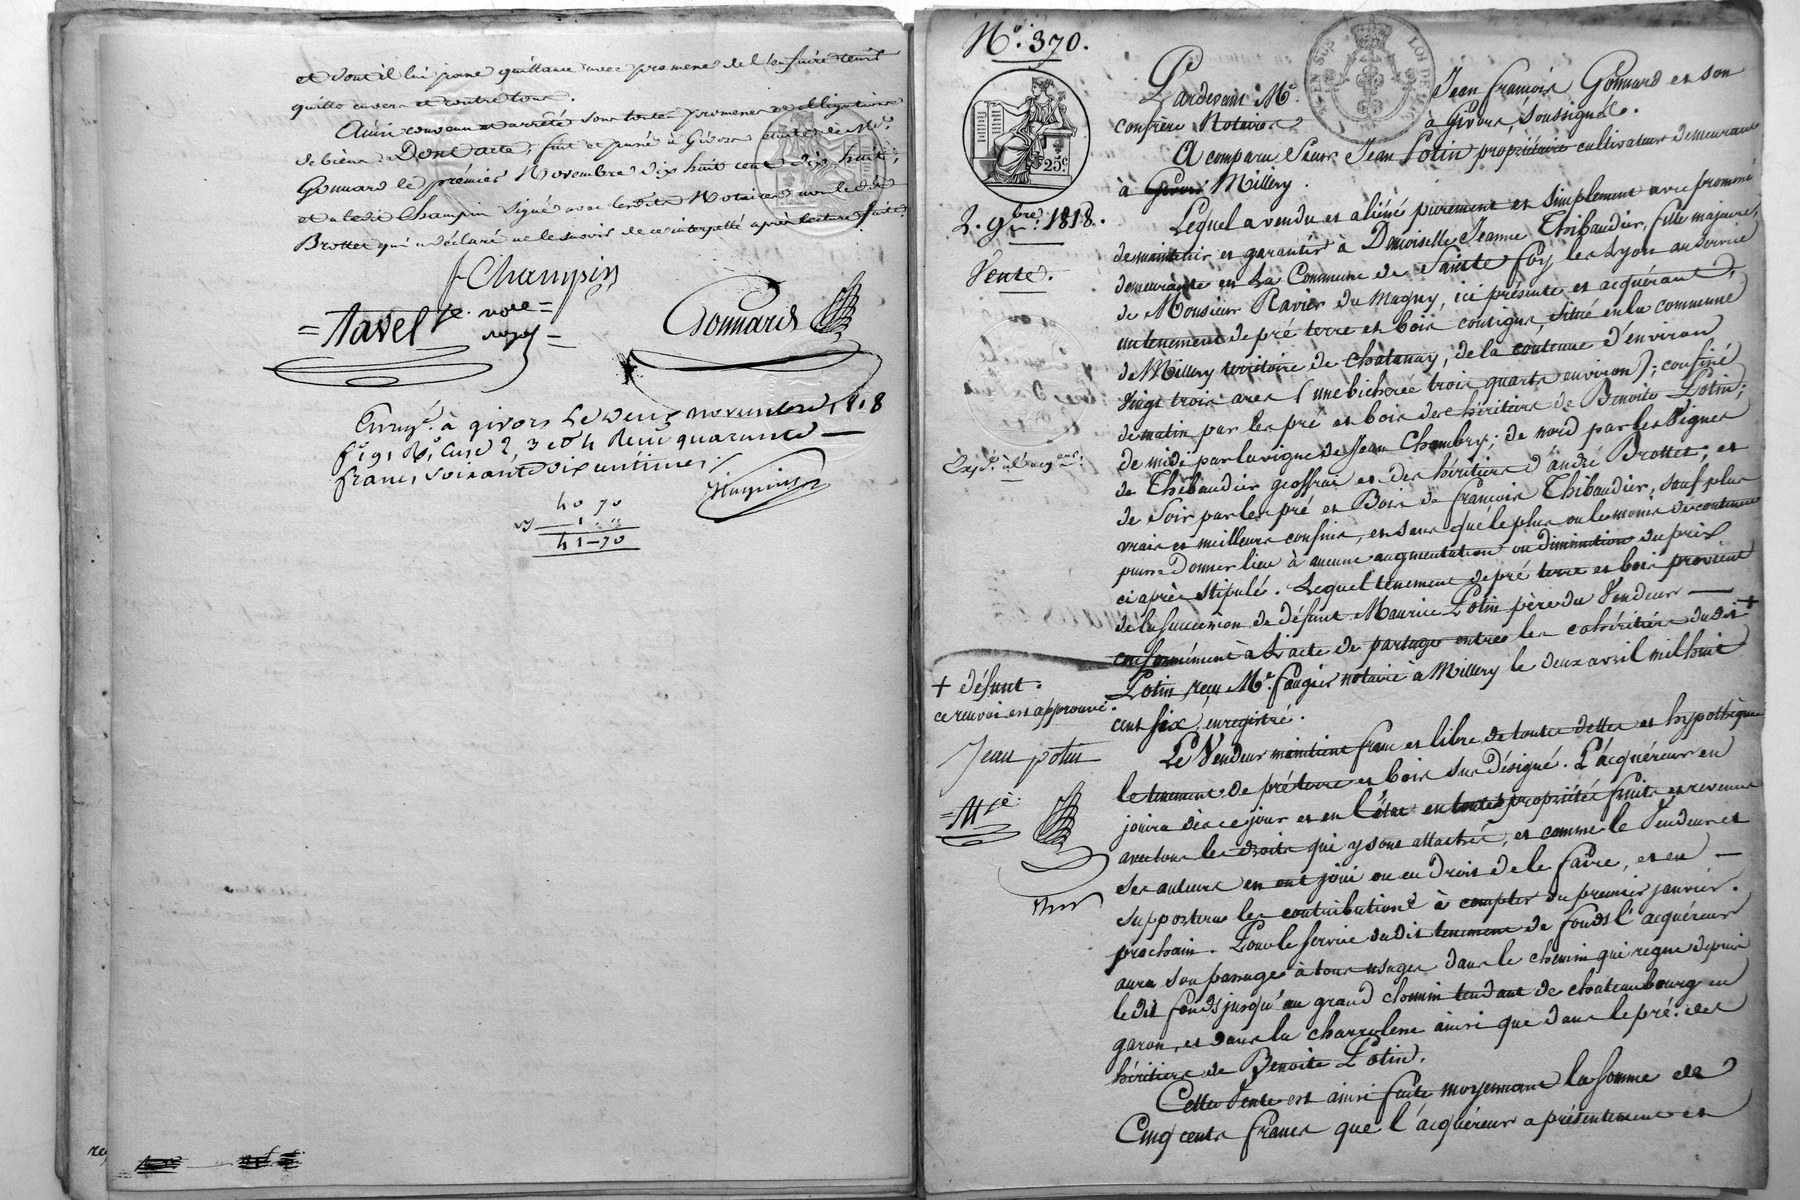 et dont il lui passe quittance avec promesse de l'en faire tenir
quitte envers et contre tous.
Ainsi convenu et arrêté sous toutes promesses et obligations
de biens. Dont acte, fait et passé à Givors étude de Me.
Gonnard le premier Novembre dix huit cent dix huit,
et a ledit Champin signé avec lesdits Notaires non ledit
Brottet qui a déclaré ne le savoir de ce interpellé après lecture faite.
Champin
= Navel
Gonnard
Enregé. à givors le deux novembre 1818
fo. 91 Ro. Case 2, 3 et 4 Reçu quarante
francs soixante dix centimes.
40 70
41-70
No. 370.
25c.
2. 9bre. 1818.
Vente.
Pardevant Me. Jean François Gonnard et son
confrère Notaires à Givors, soussignés.
A comparu Sieur Jean Potin propriétaire cultivateur demeurant
à Givors Millery.
Lequel a vendu et aliéné purement et simplement avec promesse
de maintenir et garantir à Demoiselle Jeanne Thibaudier, fille majeure,
demeurante en la Commune de Sainte Foy les Lyon au service
de Monsieur Ravier du Magny, ici présente et acquérant,
un tenement de pré terre et bois contigus, situé en la commune
de Millery territoire de Chatanay, de la contenue d'environ
vingt trois ares (une bicherée trois quarts environ); confiné
de matin par les pré et bois des héritiers de Benoite Potin;
de midi par la vigne de Jean Chambry; de nord par les Vignes
de Thibaudier geoffray et des héritiers d'andré Brottet, et
de soir par les pré et Bois de françois Thibaudier, sauf plus
vrais et meilleurs confins, en sens que le plus ou le moins de contenue
puisse donner lieu à aucune augmentation ou diminution du prix
ci après stipulé. Lequel tenement de pré terre et bois provient
de la succession de défunt Maurice Potin père du Vendeur
conformément à l'acte de partage entre les cohéritiers dudit +
Potin reçu Me. faugier notaire à Millery le deux avril mil huit
cent six, enregistré.
+ défunt.
ce renvoi est approuvé.
Jean potin
Le Vendeur maintient franc et libre de toutes dettes et hypothèques
le tenement de pré terre et bois sus désigné. L'acquéreur en
jouira dès ce jour et en l'état en toutes propriétés fruits et revenus
avec tous les droits qui y sont attachés, et comme le Vendeur et
ses auteurs en ont joui ou eu droit de le faire, et en
supportera les contributions à compter du premier janvier
prochain. Pour le service dudit tenement de fonds l'acquéreur
aura son passage à tous usages dans le chemin qui regne depuis
ledit fonds jusqu'au grand chemin tendant de chateaubourg en
garon, et dans la charrulese ainsi que dans le pré des
héritiers de Benoite Potin.
Cette Vente est ainsi faite moyennant la somme de
Cinq cents francs que l'acquéreur a présentement et